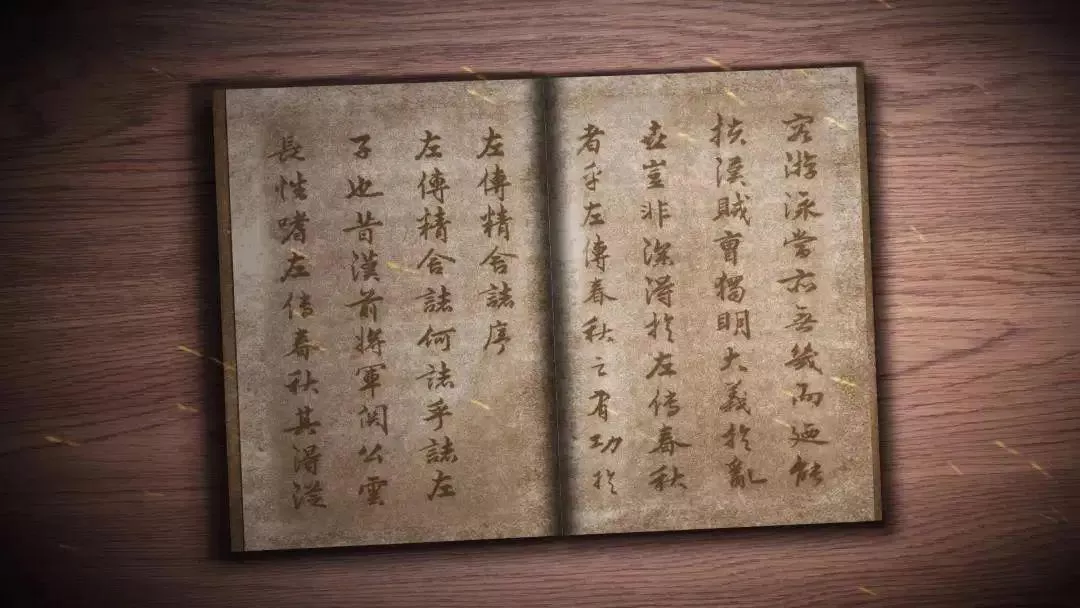 左傳精舍誌序
左傳精舍誌何誌乎誌左
子也昔漢前將軍関公雲
長性嗜左傳春秋其得從
容游泳當亦無幾而廼能
扶漢賊曹獨明大義於亂
世豈非深得於左傳春秋
者乎左傳春秋之有功於